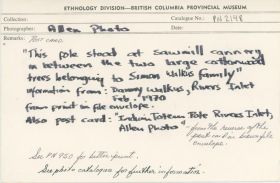 ETHNOLOGY DIVISION—BRITISH COLUMBIA PROVINCIAL MUSEUM
Collection:
Catalogue No.: PN 2148
Photographer: Allen Photo
Remarks: Post card
"This pole stood at sawmill cannery
in between the two large cottonwood
trees belonging to Simon Walkus family"
information from: Danny Walkus, Rivers Inlet
Feb, 1970
from print in file envelope.
Also post card: "Indian Totem Pole Rivers Inlet,
Allen Photo"
- from the reverse of the
post card in
envelope.
See PN 950 for better print.
See photo catalogue for further information.